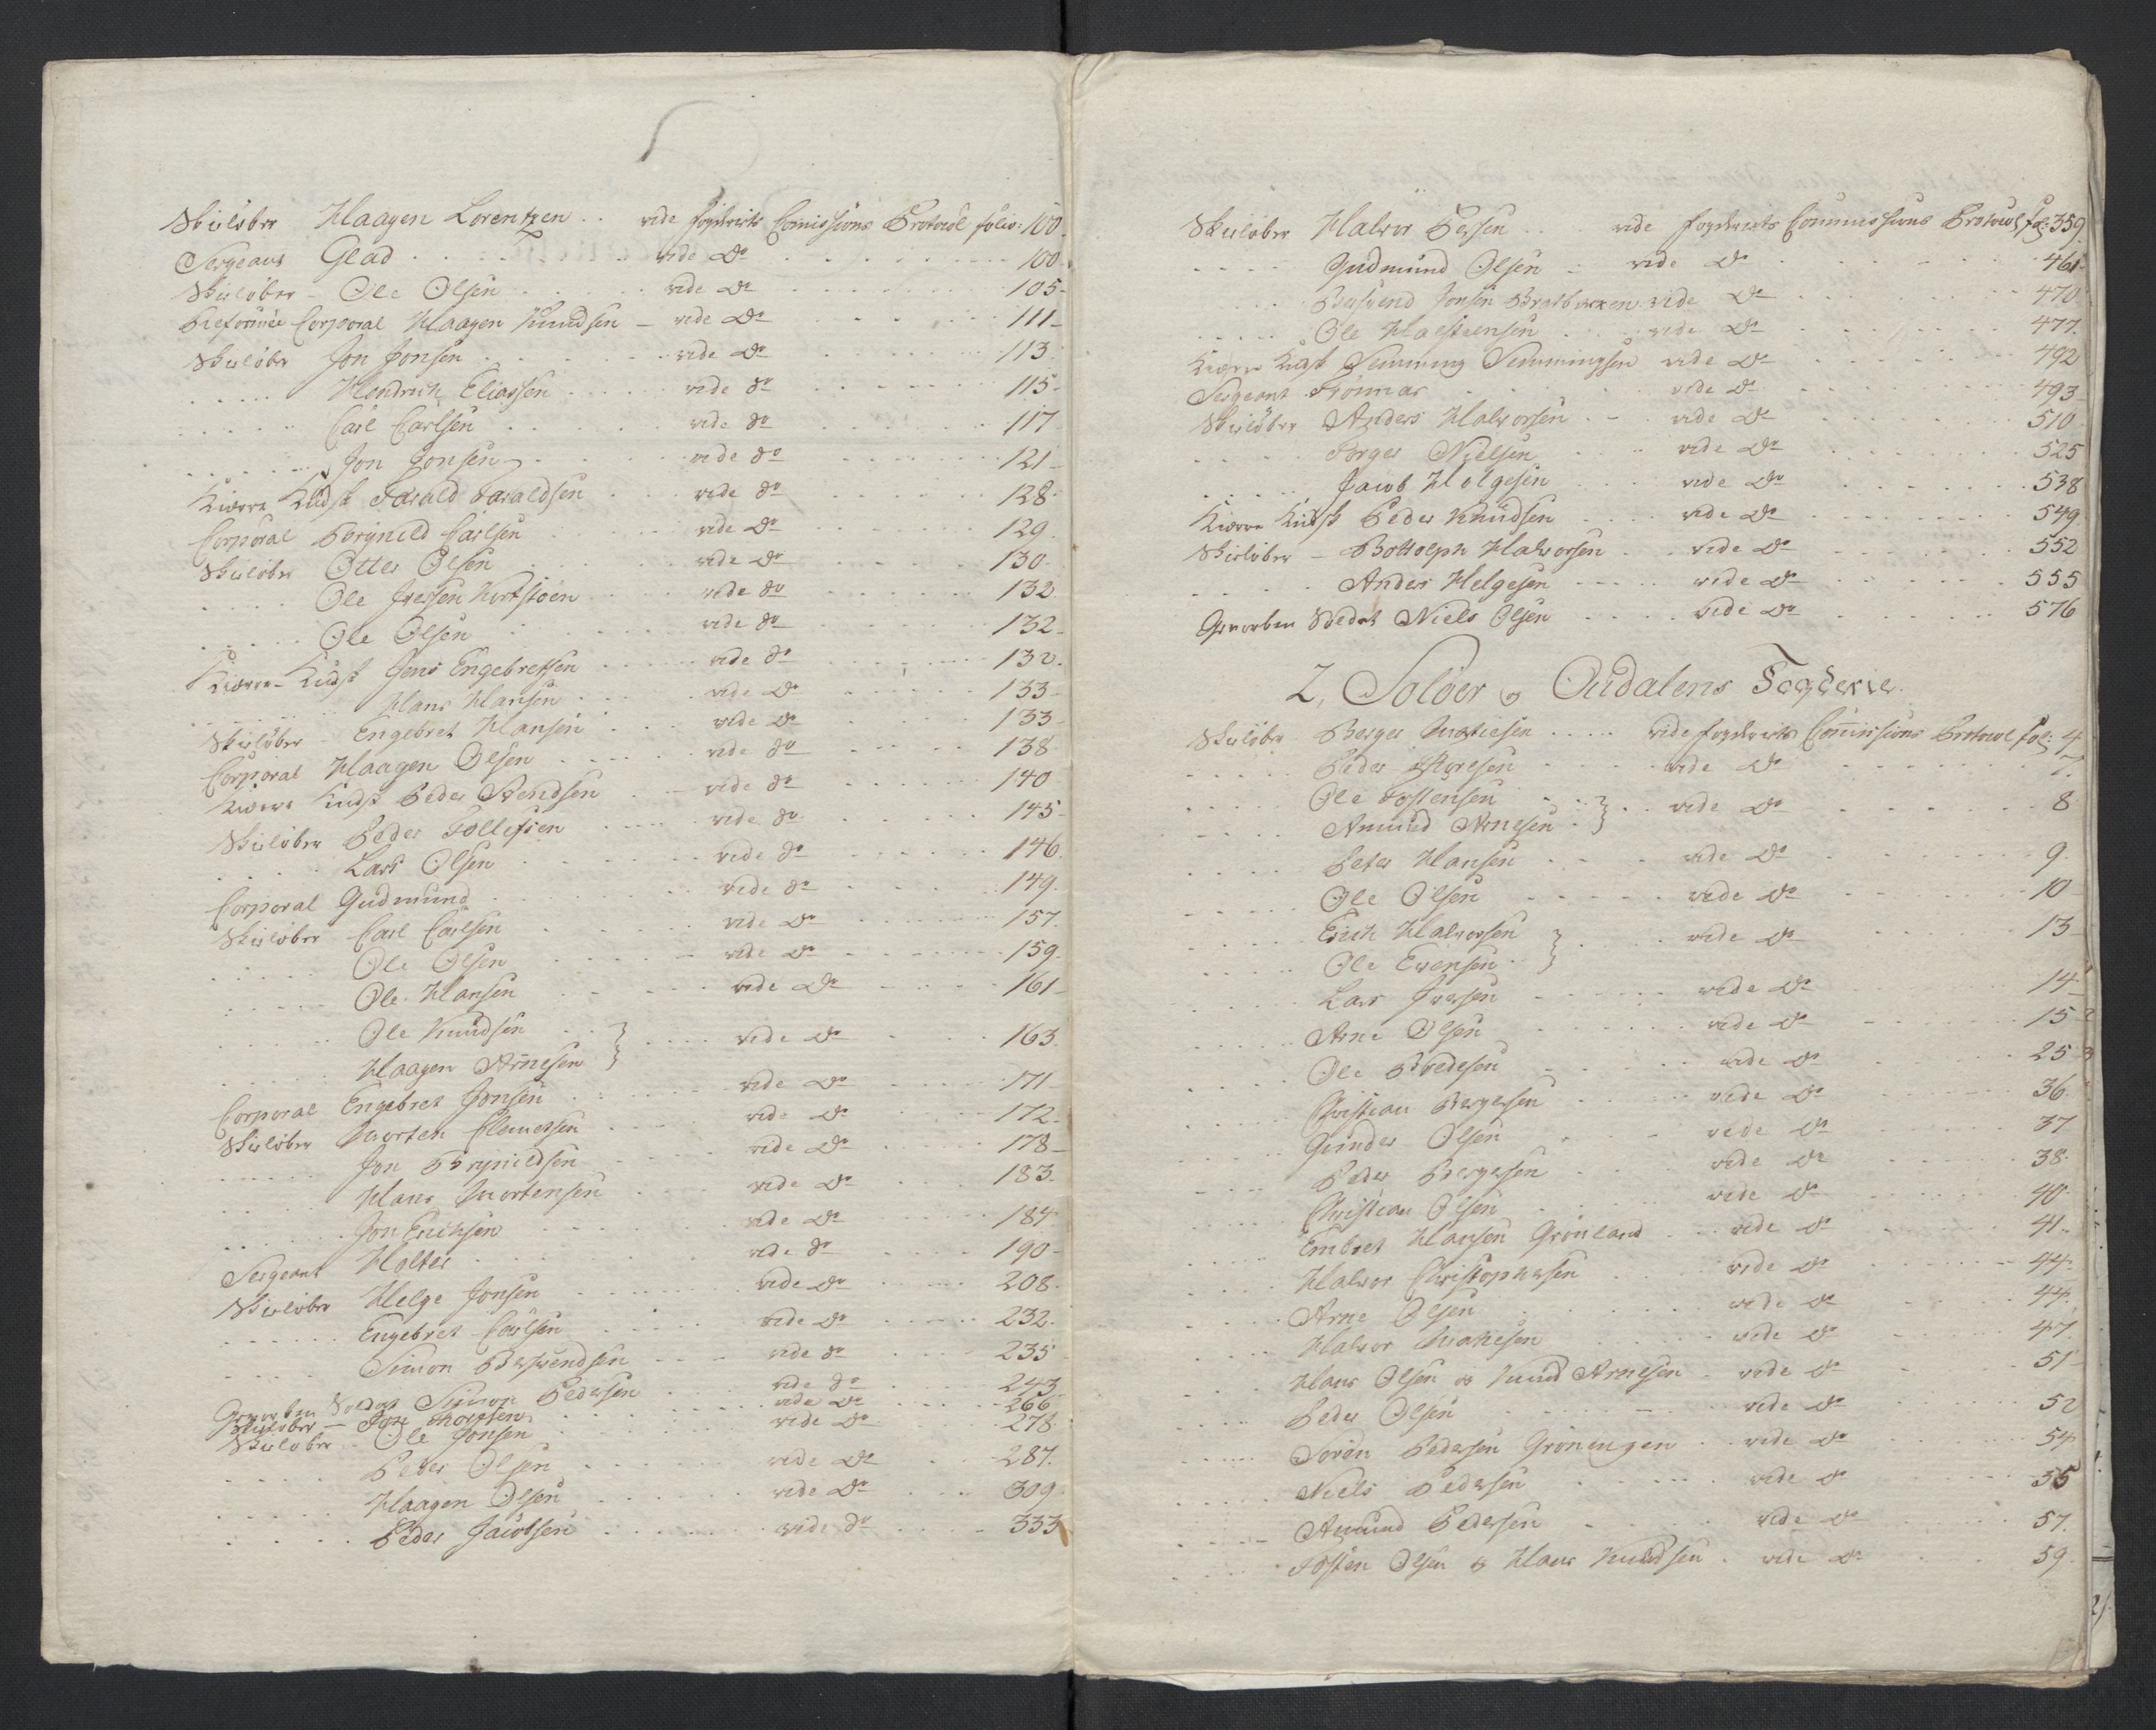 Skiløber Haagen Lorentzen . . vide fogderiets Comissions Protocol folio: 100.
Sergeant Glad . . . . . vide Do . . . . 100.
Skiløber - Ole Olsen . . . . vide Do . . . . 105-
Reformée Corporal Haagen Knudsen - vide Do . . . . 111-
Skiløber Jon Jonsen . . . . vide Do . . . . 113.
. . . . Hendrich Eliassen . . . . vide do . . . . 115-
. . . . Carl Carlsen . . . . vide do . . . . 117
. . . . Jon Jonsen . . . . vide do . . . . 121-
Kiørre Kudsk Harald Haraldsen . . . vide do . . . . 128.
Corporal Brynild Carlsen . . . . vide Do . . . . 129.
Skiløber Otter Olsen . . . . vide Do . . . . 130.
. . . . Ole Iversen . . . . vide do . . . . 132.
. . . . Ole Olsen . . . . vide do . . . . 132-
Kiørre-Kudsk Jens Engebretsen . . . . vide do . . . . 132.
. . . . Hans Hansen . . . . vide Do . . . . 133-
Skiløber - Engebret Hansen . . . . vide Do . . . . 133-
Corporal Haagen Olsen . . . . vide do . . . . 138
Kiørre Kudsk Peder Svendsen . . . vide do . . . . 140
Skiløber Peder Tollefsen . . . . vide do . . . . 145-
. . . . Lars Olsen . . . . vide do . . . . 146.
Corporal Gudmund . . . . vide do . . . . 149.
Skiløber Carl Carlsen . . . . vide Do . . . . 157.
. . . . Ole Olsen . . . . vide Do . . . . 159.
. . . . Ole Hansen . . . . vide Do . . . . 161-
. . . . Ole Knudsen . . }
. . . . Haagen Arnesen } . . . . vide Do . . . . 163.
Corporal Engebret Jonsen . . . . vide Do . . . . 171-
Skiløber Morten Clemetsen . . . . vide Do . . . . 172.
. . . . Jon Brynildsen . . . . vide Do . . . . 178-
. . . . Hans Mortensen . . . . vide Do . . . . 183.
. . . . Jon Erichsen . . . . vide Do . . . . 184
Sergeant Holter . . . . vide do . . . . 190-
Skiløber Helge Jonsen . . . . vide Do . . . . 208.
. . . . Engebret Carlsen . . . . vide Do . . . . 232.
. . . . Simon Bersvendsen . . . . vide do . . . . 235
Gevorben Soldat Simon Pedersen . . . . vide Do . . . . 243
Skiløber - Jon . . . . vide Do . . . . 266
Skiløber - Ole Jonsen . . . . vide Do . . . . 278.
. . . . Peder Olsen . . . . vide Do . . . . 287.
. . . . Haagen Olsen . . . . vide Do . . . . 309
. . . . Peder Jacobsen . . . . vide do . . . . 333
Skiløber Halvor Persen . . . vide fogderiets Commissions Protocol fol: 359.
. . . . Gudmund Olsen - vide Do . . . . 461.
. . . . Bersvend Jonsen Bratbacken vide Do . . . . 470
. . . . Ole Halsteensen . . . . vide Do . . . . 477.
Kiørre Kudsk Semming Semmingsen vide Do . . . . 492
Sergeant Frønnar . . . . vide Do . . . . 493-
Skiløber Anders Halvorsen . - vide Do . . . . 510.
. . . . Torger Nielsen . . . . vide Do . . . . 525
. . . . Jacob Holgesen . . . . vide Do . . . . 538
Kiørre Kudsk Peder Knudsen . . . . vide Do . . . . 549
Skiløber - Bottolph Halvorsen . . vide Do . . . . 552
. . . . Anders Helgesen . . . . vide Do . . . . 555
Gevorben Soldat Niels Olsen . . . . vide Do . . . . 576
2, Soløer og Oudalens Fogderie.
Skiløber Berger Mathiesen . . . . vide fogderiets Commissions Protocol fol: 4.
. . . . Peder . . . . vide Do . . . . 7.
. . . . Ole Tostensen . . }
. . . . Amund Arnesen . } . . vide Do . . . . 8
. . . . Peter Hansen . . . . vide Do . . . . 9.
. . . . Ole Olsen . . . . vide Do . . . . 10
. . . . Erich Halvorsen }
. . . . Ole Evensen . } . . . . vide Do . . . . 13-
. . . . Lars Iversen . . . . vide Do . . . . 14-
. . . . Arne Olsen . . . . vide Do . . . . 15-
. . . . Ole Bredesen . . . . vide Do . . . . 25
. . . . Christian Bergersen . . . . vide Do . . . . 36.
. . . . Gunder Olsen . . . . vide Do . . . . 37
. . . . Peder Bergersen . . . . vide Do . . . . 38.
. . . . Christian Olsen . . . . vide Do . . . . 40.
. . . . Embret Hansen Grønland . . . vide Do . . . . 41.
. . . . Halvor Christophersen . . . . vide Do . . . . 44.
. . . . Arne Olsen . . . . vide Do . . . . 44.
. . . . Halvor Mathiesen . . . . vide Do . . . . 47.
. . . . Hans Olsen og Knud Arnesen . vide Do . . . . 51-
. . . . Peder Olsen . . . . vide Do . . . . 52
. . . . Søren Pedersen Grøningen . . vide Do . . . . 54
. . . . Niels Pedersen . . . . vide Do . . . . 55
. . . . Amund Pedersen . . . . vide Do . . . . 57.
. . . . Tosten Olsen og Hans Knudsen . vide Do . . . . 59.